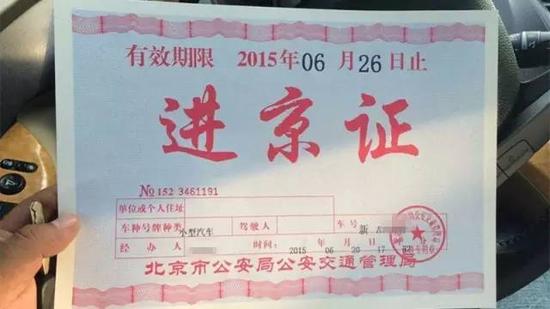 有效期限 2015年06月26日止
进京证
No 152 3461191
单位或个人住址
车种号牌种类 小型汽车 驾驶人 车号 新
经办人 时间: 2015 06 20 17
北京市公安局公安交通管理局